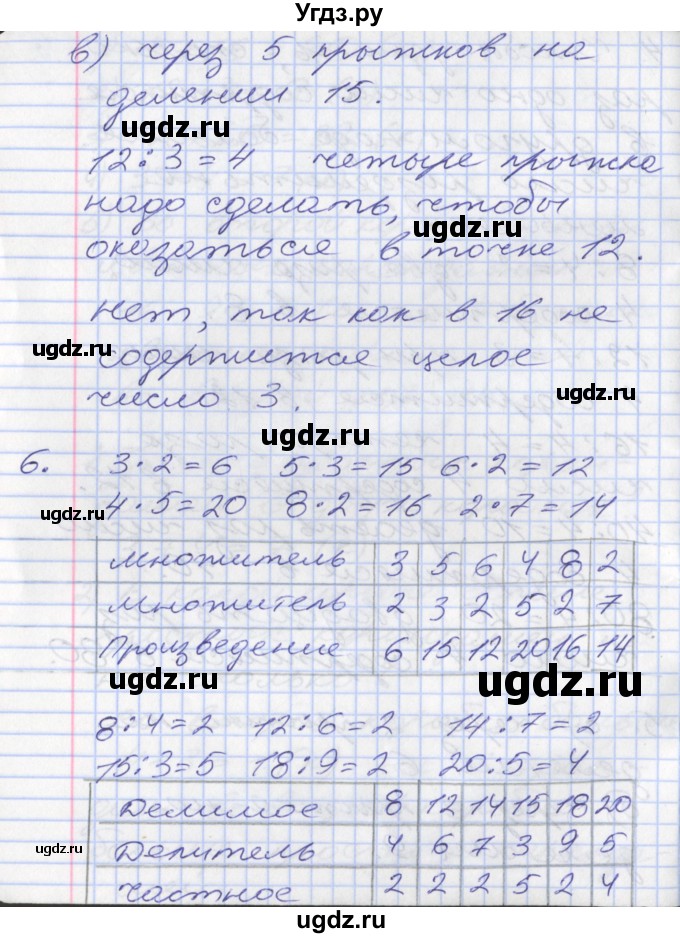 Угдз.ру
в) через 5 прыжков на
делении 15.
ugdz.ru
12:3=4 четыре прыжка
надо сделать, чтобы
ugdz.ru
оказаться в точке 12.
Нет, так как в 16 не
ugdz.ru
содержится целое
ugdz.ru
число 3.
ugdz.ru
6. 3·2=6 5·3=15 6·2=12
ugdz.ru
4·5=20 8·2=16 2·7=14
Множитель 3 5 6 4 8 2
Множитель 2 3 2 5 2 7
Произведение 6 15 12 20 16 14
ugdz.ru
ugdz.ru
8:4=2 12:6=2 14:7=2
15:3=5 18:9=2 20:5=4
Делимое 8 12 14 15 18 20
ugdz.ru
Делитель 4 6 7 3 9 5
ugdz.ru
частное 2 2 2 5 2 4
ugdz.ru